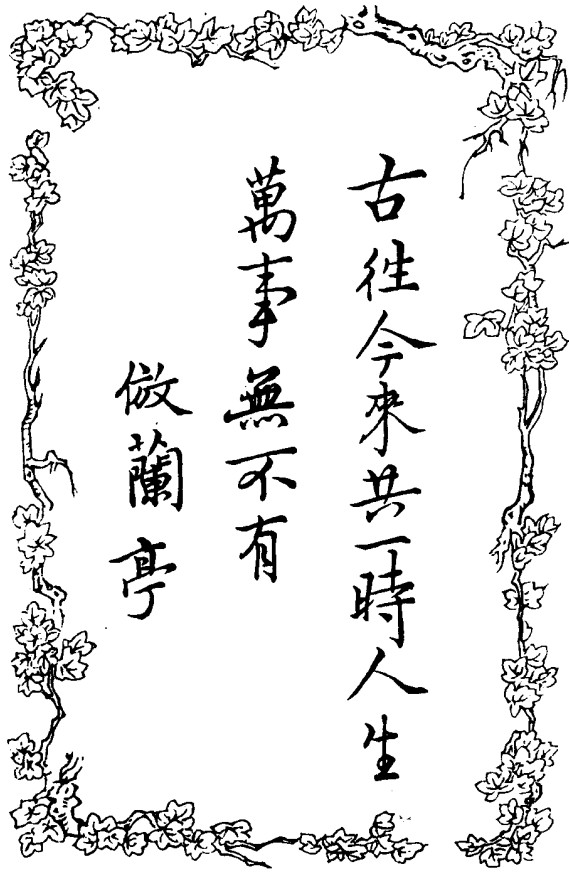 古往今來共一時人生
萬事無不有
倣蘭亭